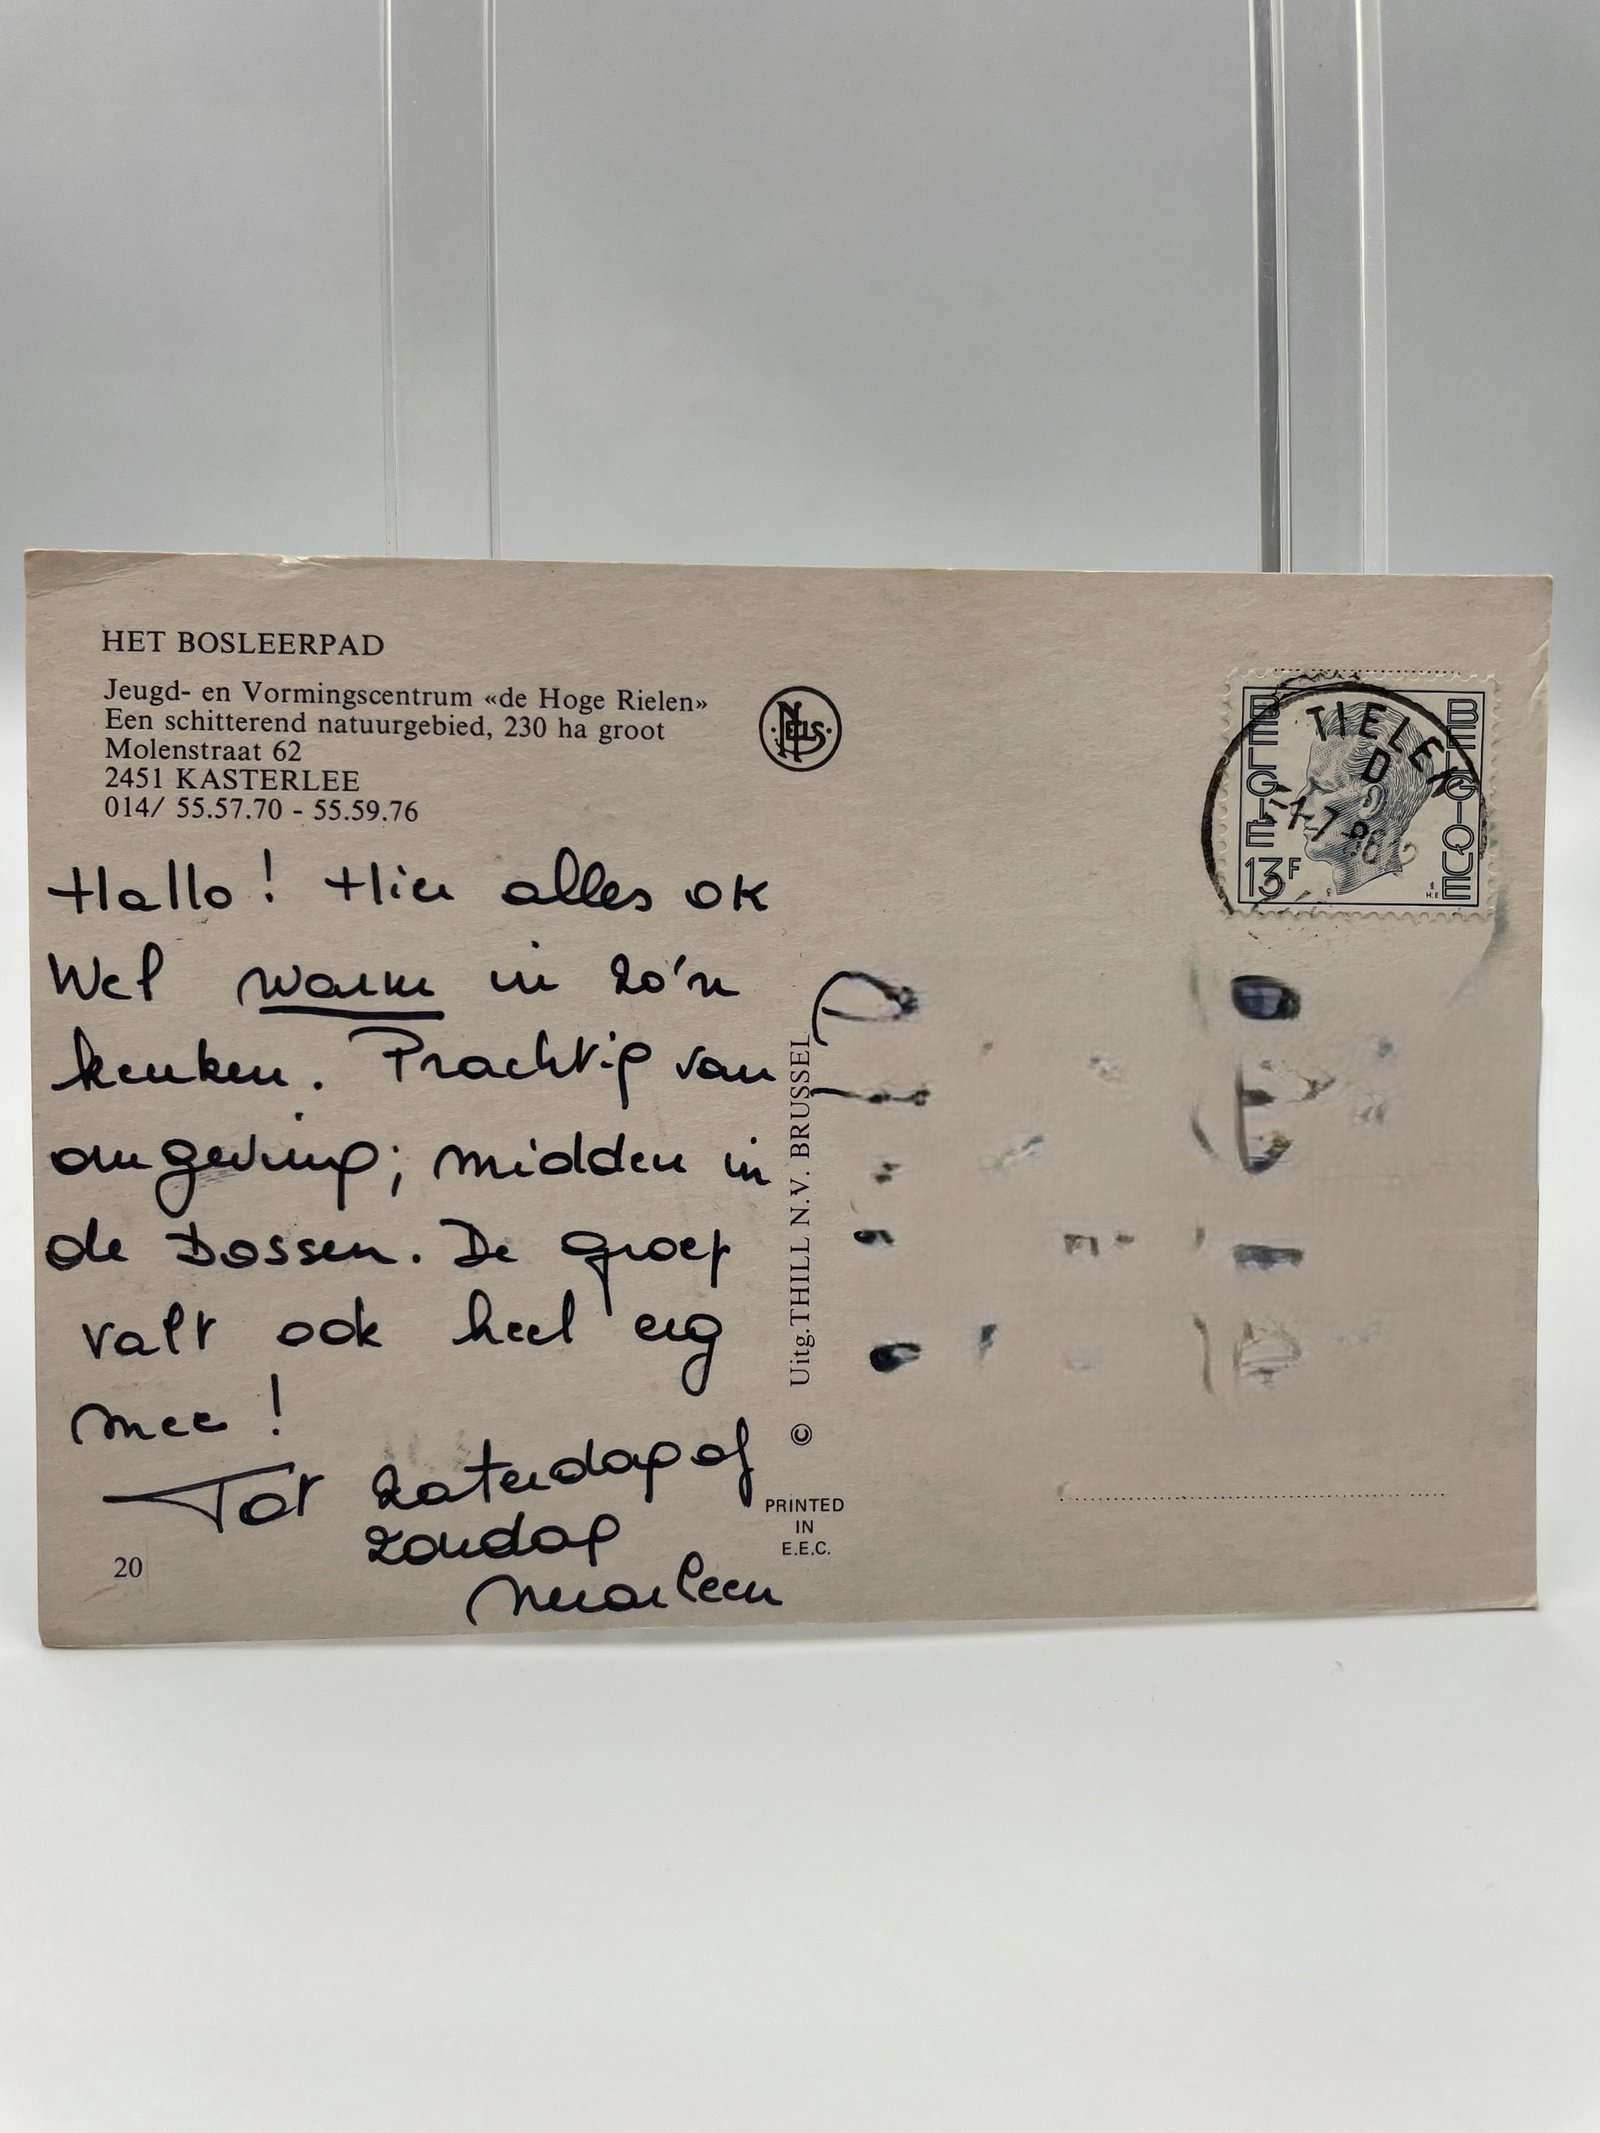 HET BOSLEERPAD
Jeugd- en Vormingscentrum «de Hoge Rielen»
Een schitterend natuurgebied, 230 ha groot
Molenstraat 62
2451 KASTERLEE
014/ 55.57.70 - 55.59.76
Hallo! Hier alles OK
Wel warm in zo'n
keuken. Prachtig van
omgeving; midden in
de Bossen. De groep
valt ook heel erg
mee!
Tot zaterdag of
zondag
Marleen
20
NELS
Uitg. THILL N.V. BRUSSEL
©
PRINTED
IN
E.E.C.
BELGIË
BELGIQUE
13F
TIELEN
D
-1-7